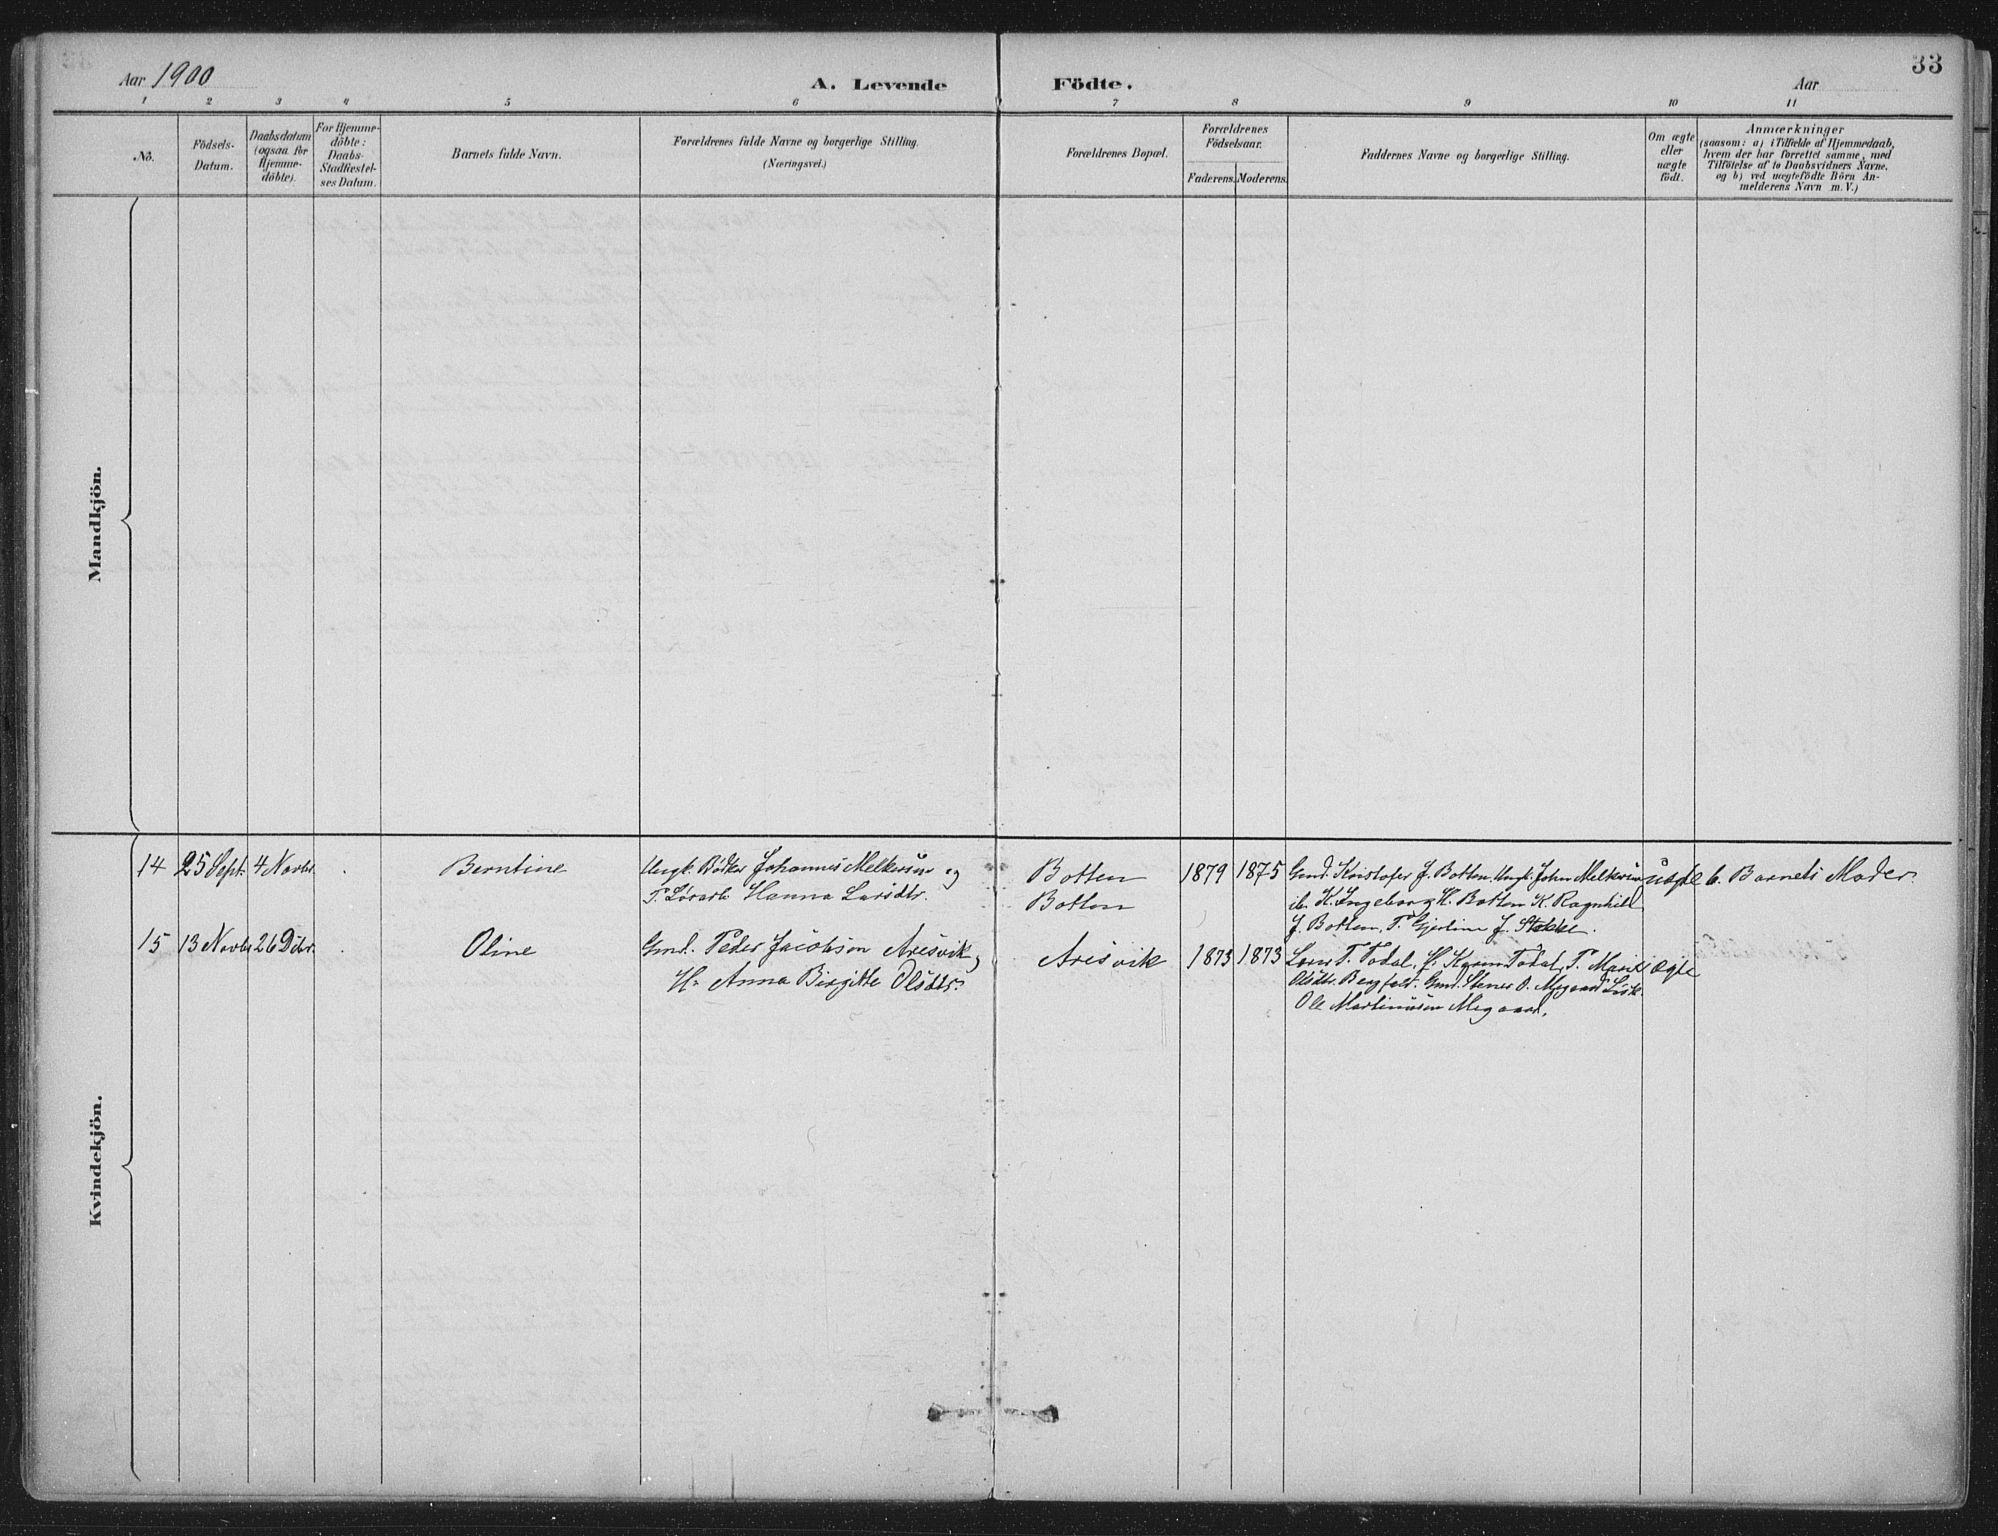 33
Aar 1900
A. Levende Födte.
Aar
1 2 3 4 5 6 7 8 9 10 11
No.
Födsels-Datum.
Daabsdatum (ogsaa for Hjemme-döbte).
For Hjemme-döbte: Daabs-Stadfæstel-ses Datum.
Barnets fulde Navn.
Forældrenes fulde Navne og borgerlige Stilling.
(Næringsvei.)
Forældrenes Bopæl.
Forældrenes Födselsaar.
Faderens. Moderens.
Faddernes Navne og borgerlige Stilling.
Om ægte eller uægte födt.
Anmærkninger
(saasom: a) i Tilfælde af Hjemmedaab,
hvem der har forrettet samme, med
Tilföielse af to Daabsvidners Navne,
og b) ved uægtefödte Börn An-
melderens Navn m. V.)
Mandkjön.
Kvindekjön.
14 25 Sept. 4 Novbr. Berntine Ungk. Bödker Johannes Melkersen og Botten 1879 1875 Gmd. Kristofer J. Botten. Ungk. John Melkersen uægte b. Barnets Moder.
Hanna Larsdtr. Botten ib. K. Ingeborg H. Botten K. Ragnhild
J. Botten, P. Gjertine J. Stokke.
15 13 Novbr 26 Dcbr. Oline Gmd. Peder Jacobsen Aresvik Aresvik 1873 1873 Lars T. Todal, H. Karen Todal, P. Marit ægte
H. Anna Birgitte Olsdtr. Olsdtr. Bergfald. Gmd. Stener O. Megaard
Ole Martinusen Megaard.